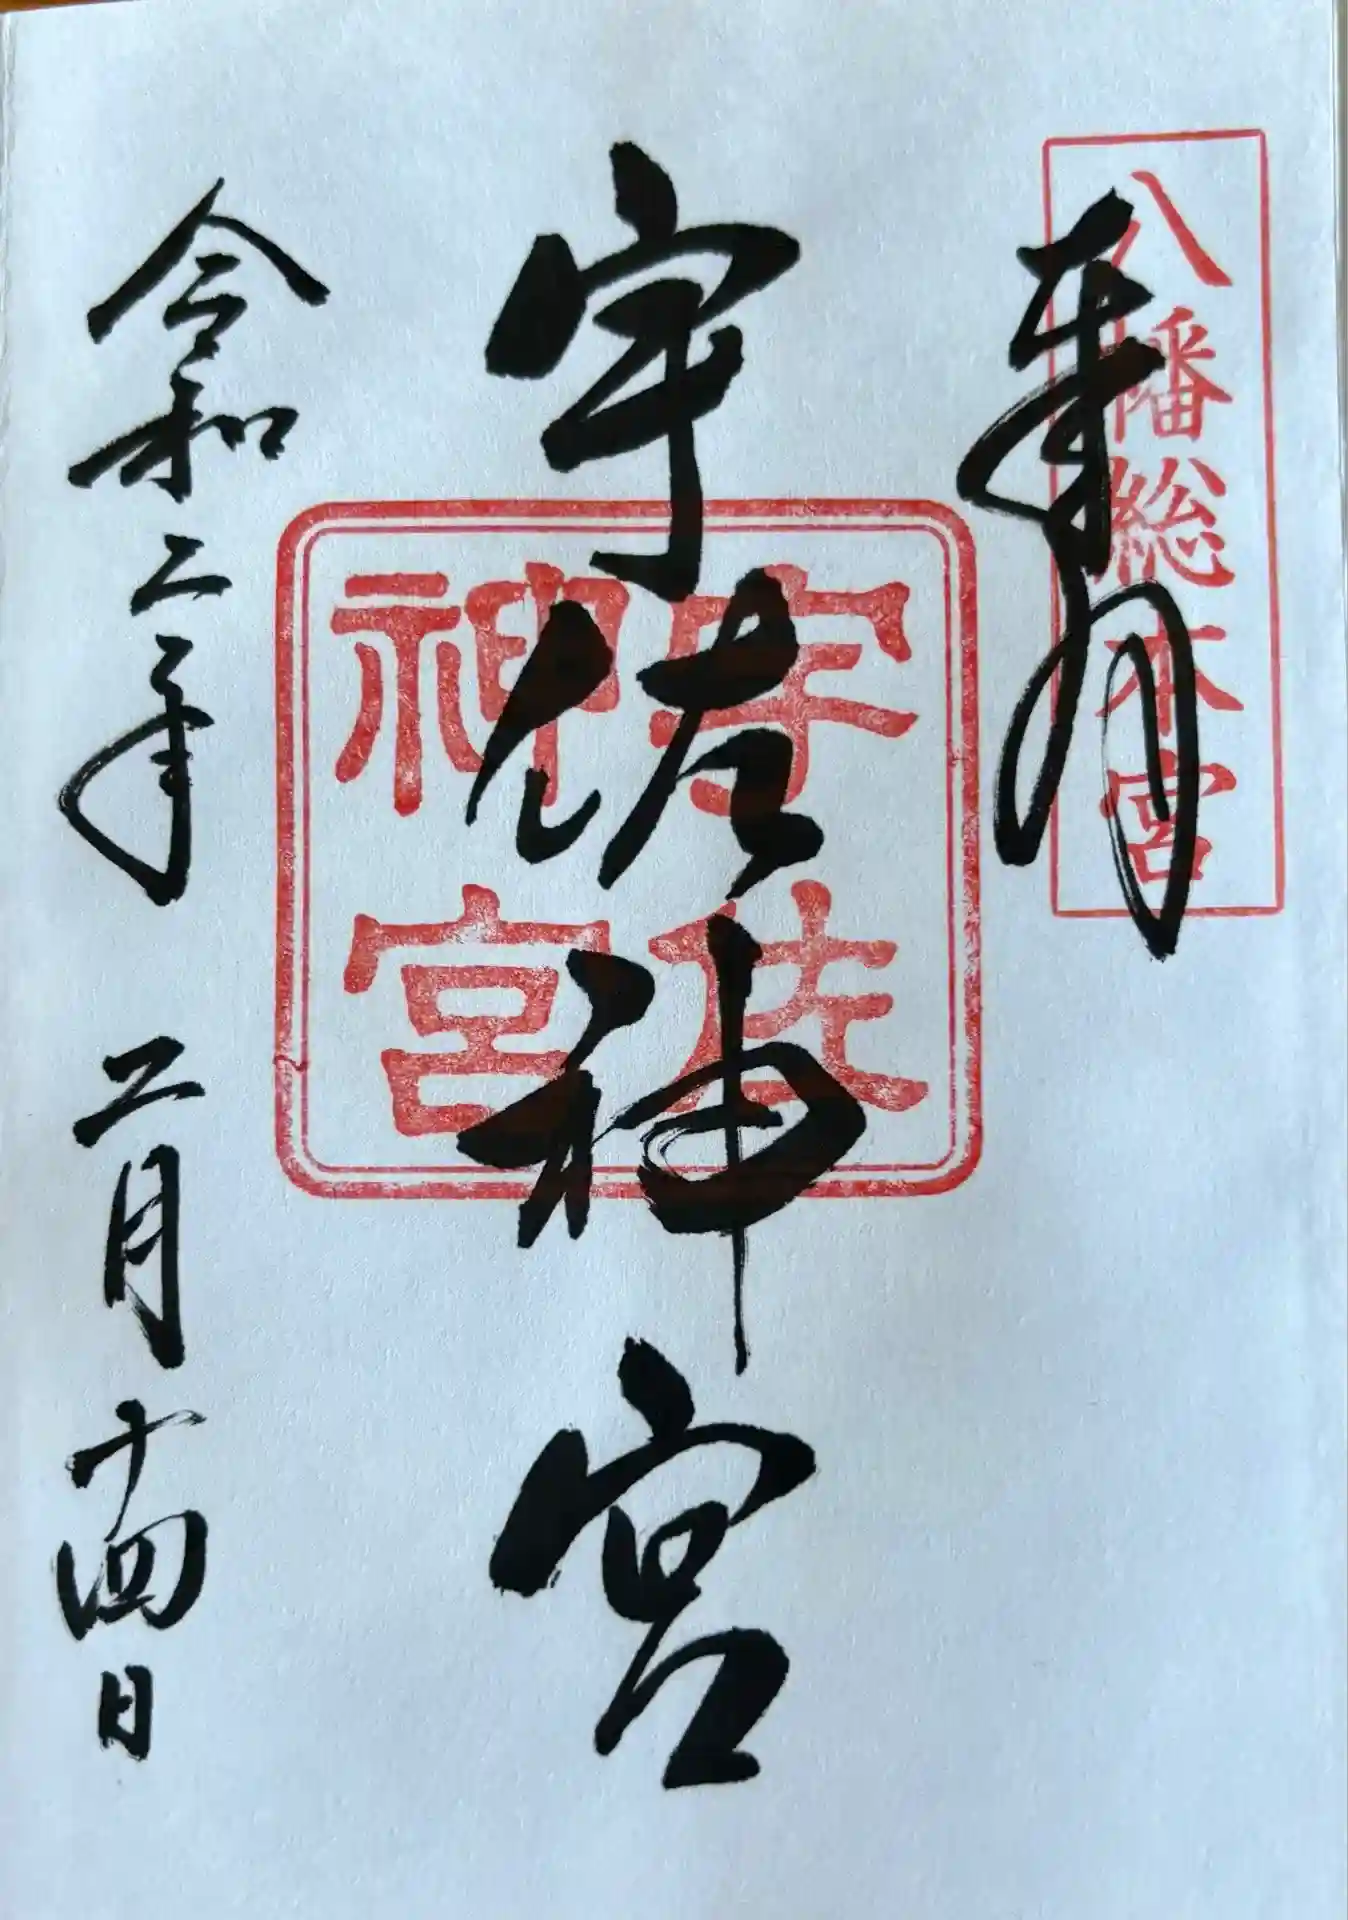 八幡総本宮
奉拝
宇佐神宮
宇佐
神宮
令和二年 二月十四日